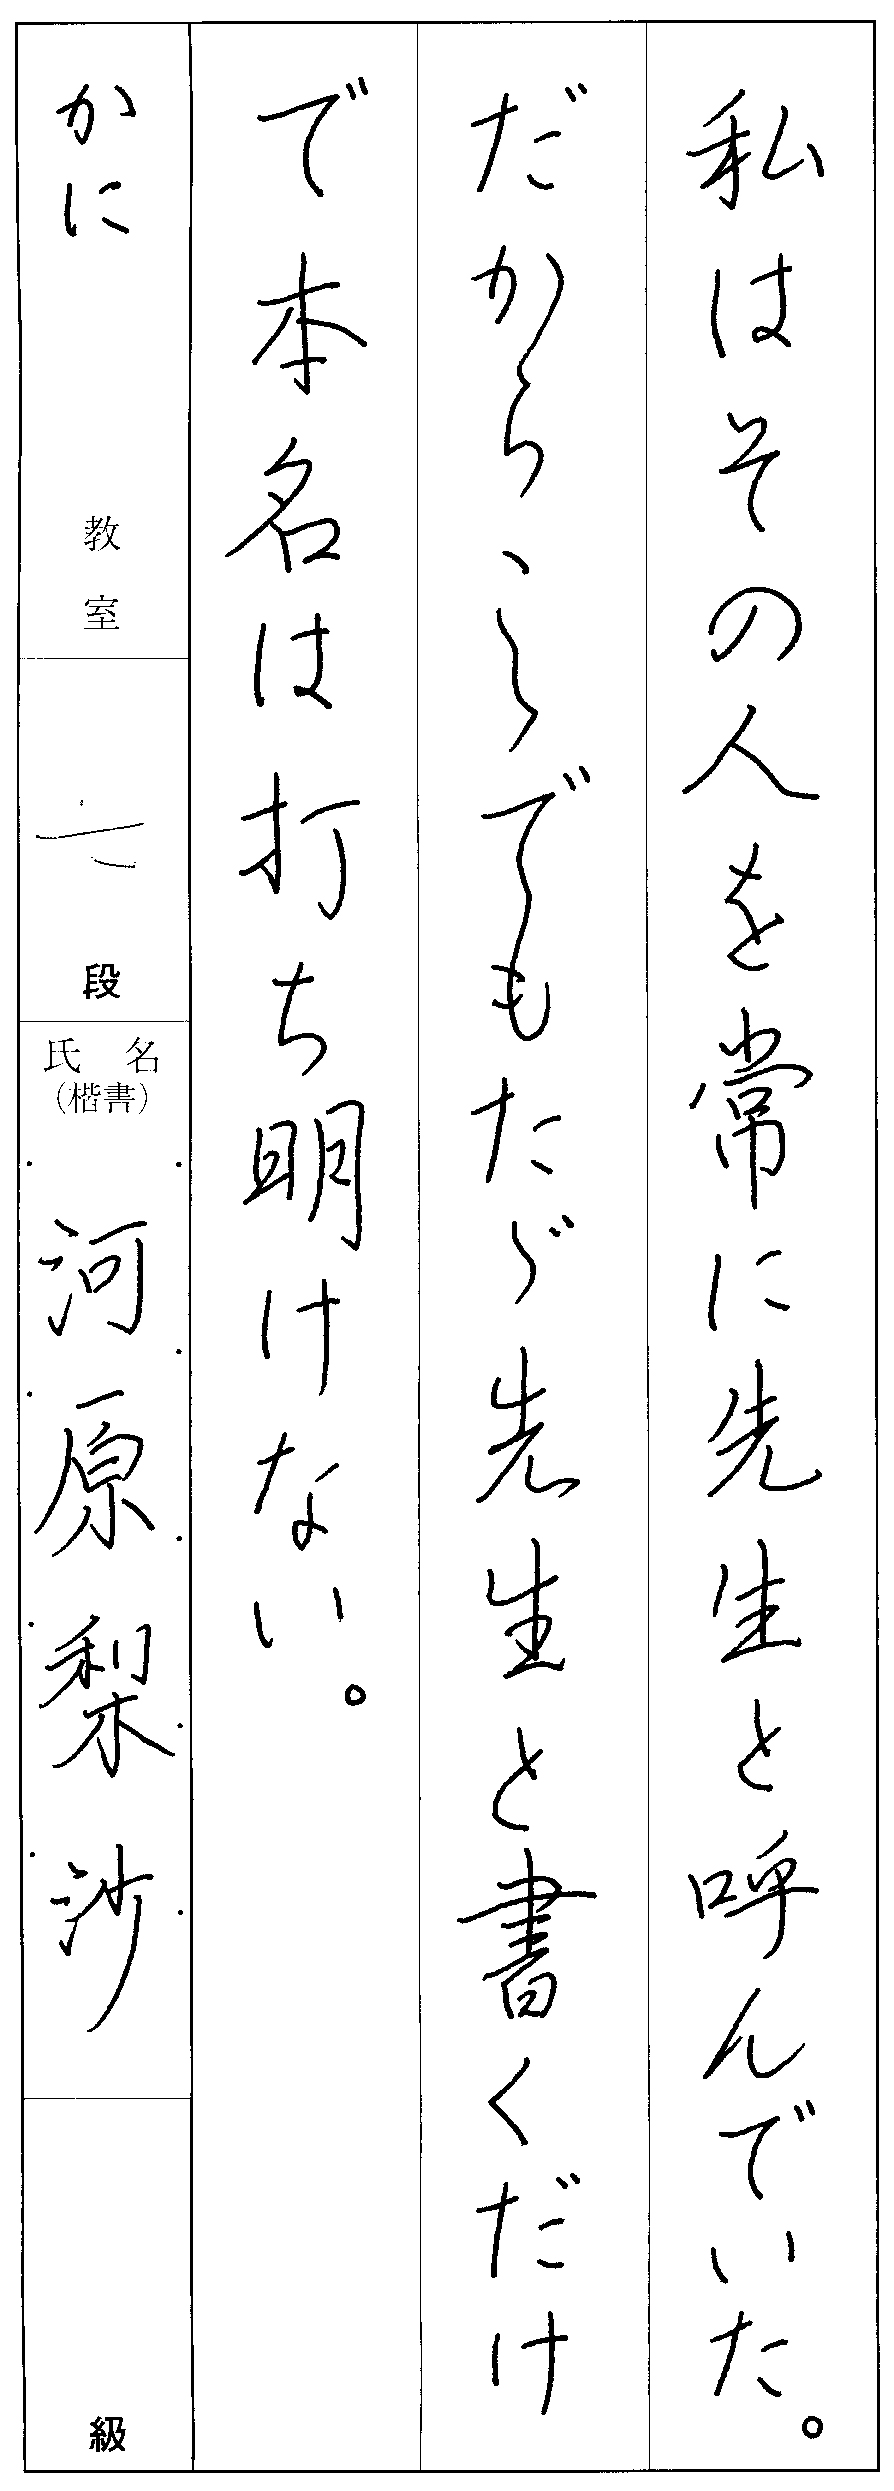 私はその人を常に先生と呼んでいた。
だから、こゝでもたゞ先生と書くだけ
で本名は打ち明けない。
かに 教室
段
氏名
(楷書)
河原梨沙
級